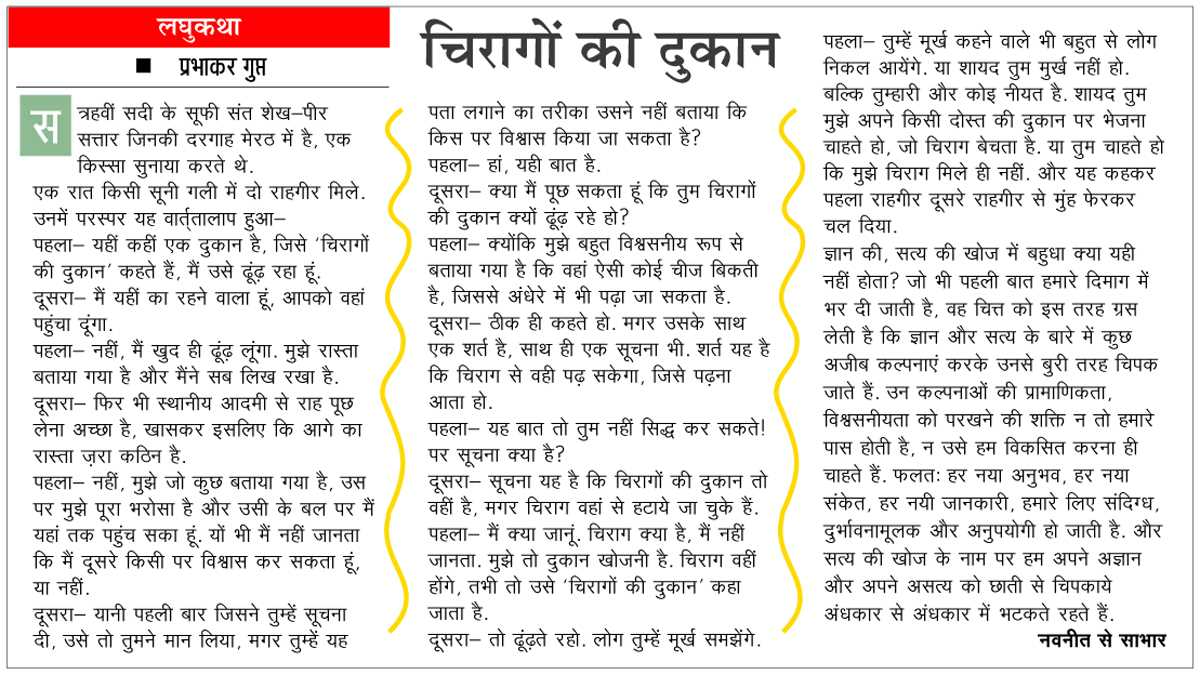 लघुकथा
■ प्रभाकर गुप्त
चिरागों की दुकान
सत्रहवीं सदी के सूफी संत शेख–पीर
सत्तार जिनकी दरगाह मेरठ में है, एक
किस्सा सुनाया करते थे.
एक रात किसी सूनी गली में दो राहगीर मिले.
उनमें परस्पर यह वार्त्तालाप हुआ–
पहला– यहीं कहीं एक दुकान है, जिसे ‘चिरागों
की दुकान’ कहते हैं, मैं उसे ढूंढ़ रहा हूं.
दूसरा– मैं यहीं का रहने वाला हूं, आपको वहां
पहुंचा दूंगा.
पहला– नहीं, मैं खुद ही ढूंढ़ लूंगा. मुझे रास्ता
बताया गया है और मैंने सब लिख रखा है.
दूसरा– फिर भी स्थानीय आदमी से राह पूछ
लेना अच्छा है, खासकर इसलिए कि आगे का
रास्ता ज़रा कठिन है.
पहला– नहीं, मुझे जो कुछ बताया गया है, उस
पर मुझे पूरा भरोसा है और उसी के बल पर मैं
यहां तक पहुंच सका हूं. यों भी मैं नहीं जानता
कि मैं दूसरे किसी पर विश्वास कर सकता हूं,
या नहीं.
दूसरा– यानी पहली बार जिसने तुम्हें सूचना
दी, उसे तो तुमने मान लिया, मगर तुम्हें यह
पता लगाने का तरीका उसने नहीं बताया कि
किस पर विश्वास किया जा सकता है?
पहला– हां, यही बात है.
दूसरा– क्या मैं पूछ सकता हूं कि तुम चिरागों
की दुकान क्यों ढूंढ़ रहे हो?
पहला– क्योंकि मुझे बहुत विश्वसनीय रूप से
बताया गया है कि वहां ऐसी कोई चीज बिकती
है, जिससे अंधेरे में भी पढ़ा जा सकता है.
दूसरा– ठीक ही कहते हो. मगर उसके साथ
एक शर्त है, साथ ही एक सूचना भी. शर्त यह है
कि चिराग से वही पढ़ सकेगा, जिसे पढ़ना
आता हो.
पहला– यह बात तो तुम नहीं सिद्ध कर सकते!
पर सूचना क्या है?
दूसरा– सूचना यह है कि चिरागों की दुकान तो
वहीं है, मगर चिराग वहां से हटाये जा चुके हैं.
पहला– मैं क्या जानूं. चिराग क्या है, मैं नहीं
जानता. मुझे तो दुकान खोजनी है. चिराग वहीं
होंगे, तभी तो उसे ‘चिरागों की दुकान’ कहा
जाता है.
दूसरा– तो ढूंढ़ते रहो. लोग तुम्हें मूर्ख समझेंगे.
पहला– तुम्हें मूर्ख कहने वाले भी बहुत से लोग
निकल आयेंगे. या शायद तुम मुर्ख नहीं हो.
बल्कि तुम्हारी और कोइ नीयत है. शायद तुम
मुझे अपने किसी दोस्त की दुकान पर भेजना
चाहते हो, जो चिराग बेचता है. या तुम चाहते हो
कि मुझे चिराग मिले ही नहीं. और यह कहकर
पहला राहगीर दूसरे राहगीर से मुंह फेरकर
चल दिया.
ज्ञान की, सत्य की खोज में बहुधा क्या यही
नहीं होता? जो भी पहली बात हमारे दिमाग में
भर दी जाती है, वह चित्त को इस तरह ग्रस
लेती है कि ज्ञान और सत्य के बारे में कुछ
अजीब कल्पनाएं करके उनसे बुरी तरह चिपक
जाते हैं. उन कल्पनाओं की प्रामाणिकता,
विश्वसनीयता को परखने की शक्ति न तो हमारे
पास होती है, न उसे हम विकसित करना ही
चाहते हैं. फलतः हर नया अनुभव, हर नया
संकेत, हर नयी जानकारी, हमारे लिए संदिग्ध,
दुर्भावनामूलक और अनुपयोगी हो जाती है. और
सत्य की खोज के नाम पर हम अपने अज्ञान
और अपने असत्य को छाती से चिपकाये
अंधकार से अंधकार में भटकते रहते हैं.
नवनीत से साभार